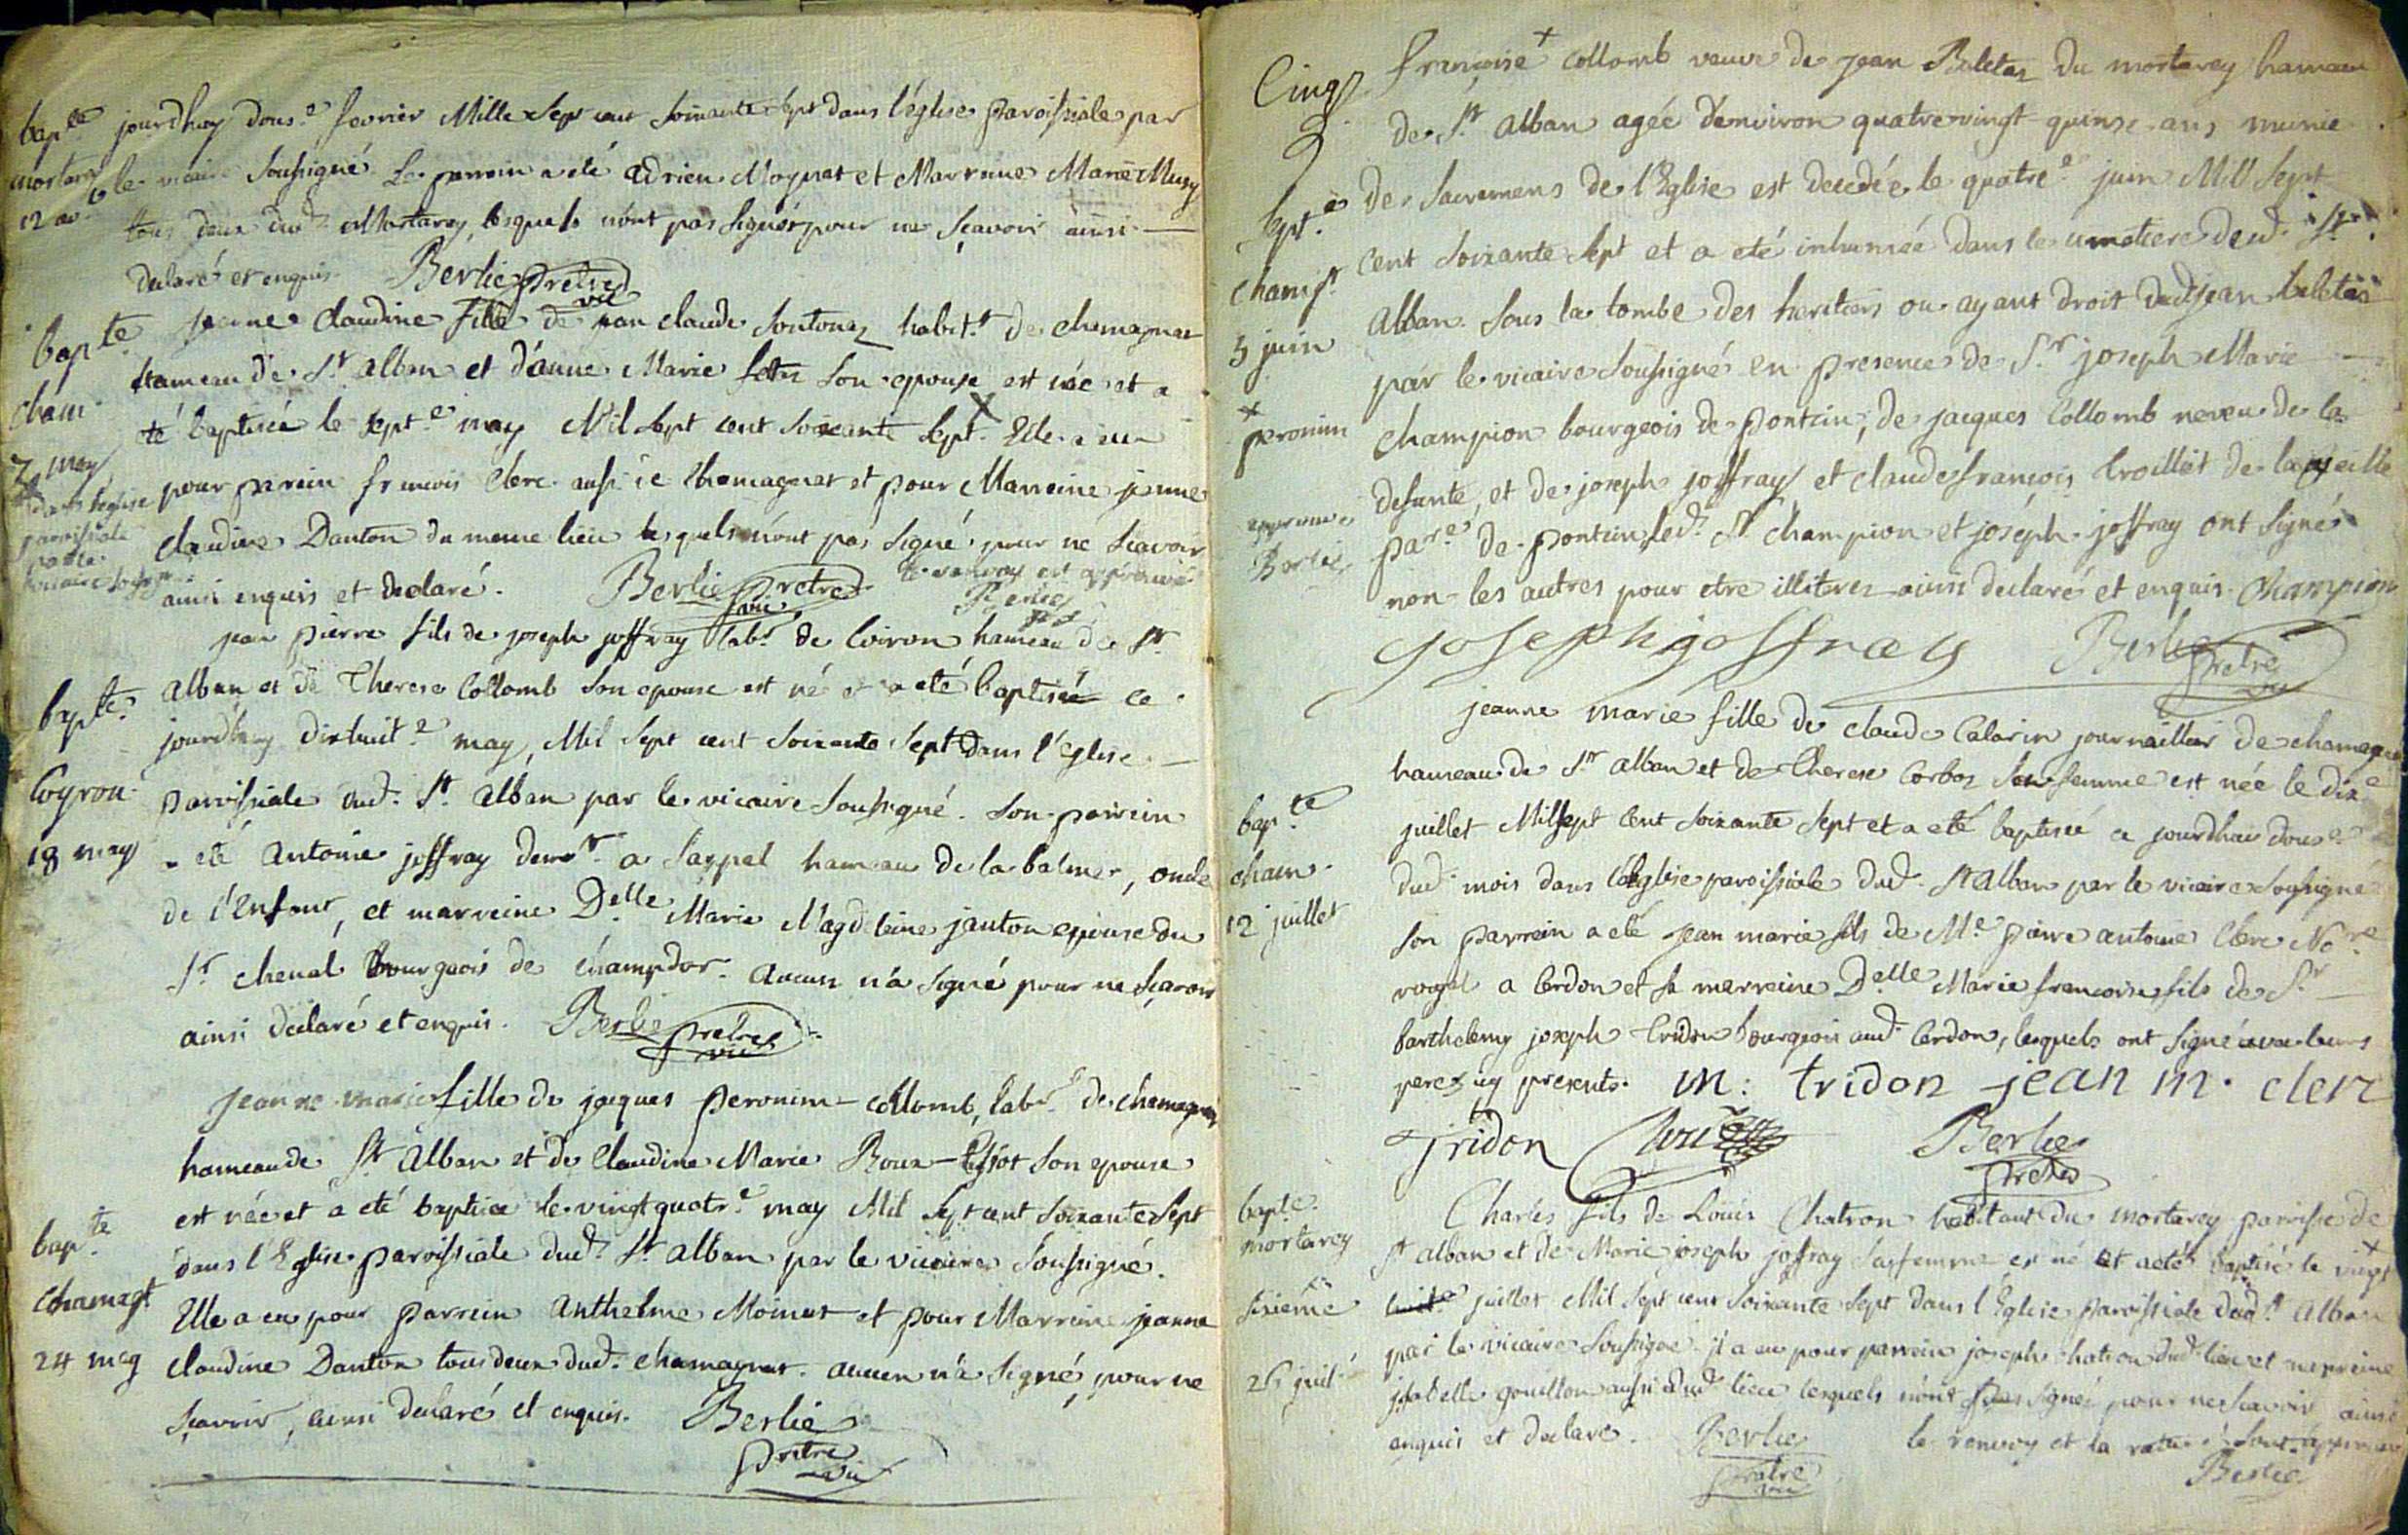 bapte
mortarey
12
jourdhuy douse fevrier Mille Sept cent Soixante Sept dans l'église paroissiale par
le vicaire Soussigné. Le parrein a eté adrien Moynat et Marraine Marie
tous deux dud. Mortarey, lesquels n'ont pas signés pour ne sçavoir ainsi
declaré et enquis. Berlie pretre vic
bapte
cham
7 may
dans l'eglise
paroissiale
par le
vicaire soussigné
Jeanne Claudine fille de jean claude habit.t de chamagnat
hameau de St alban et d'anne Marie son epouse est née et a
eté baptisée le sept.e may Mil Sept cent soixante Sept. Elle a eu
pour parein francois Clerc aussi de Chamagnat et pour Marreine jeanne
claudine Danton du meme lieu lesquels n'ont pas signé pour ne sçavoir
ainsi enquis et declaré. Berlie pretre vic
le renvoy est approuvé
Berlie
bapte.
Coyron
18 may
jean pierre fils de joseph joffray labr. de Coiron hameau de St
alban et de Therese Collomb son epouse est né et a eté baptisé ce
jourdhuy dixhuit.e may, Mil Sept cent Soixante Sept dans l'eglise
paroissiale dud. St. alban par le vicaire Soussigné. Son parrein
a eté antoine joffray a hameau de la balme, oncle
de l'Enfant, et marreine Delle Marie Magdeleine janton epouse du
Sr cheval Bourgeois de champdor. Aucun n'a signé pour ne sçavoir
ainsi declaré et enquis. Berlie prêtre vic
bapte
Chamagt
24 may
Jeanne marie fille de jacques peronim-collomb, labr. de chamagnat
hameau de St Alban et de Claudine Marie son epouse
est née et a eté baptisée le vingtquatr.e may Mil Sept cent Soixante Sept
dans l'Eglise paroissiale dud. St. alban par le vicaire Soussigné.
Elle a eu pour parrein Anthelme Moinat et pour Marreine jeanne
claudine Danton tous deux dud. chamagnat. aucun n'a signé, pour ne
sçavoir, ainsi declaré et enquis. Berlie
pretre
vic
Septe
chamgt
5 juin
+
peronim
approuvé
Berlie
francoise + Collomb veuve de jean Beletas du mortarey hameau
de St alban agée d'environ quatre vingt quinse ans munie
des Sacremens de l'Eglise est decedée le quatre.e juin Mill Sept
cent soixante Sept et a eté inhumée dans le cimetiere dud. St.
Alban. Sous la tombe des heritiers ou ayant droit dud jean beletas
par le vicaire Soussigné en presence de Sr joseph Marie
champion bourgeois de pontcin, de jacques Collomb neveu de la
defunte, et de joseph joffray et claude françois troillet de
par.e de pontcin, led. Sr champion et joseph joffray ont signés
non les autres pour etre illiteres ainsi declaré et enquis. Champion
joseph joffray Berlie
pretre vic
bapte
cham.
12 juillet
jeanne marie fille de claude Calarin journaillier de chamagnat
hameau de St alban et de Therese Corbos son femme est née le dix.e
juillet Mil Sept Cent Soixante Sept et a eté baptisée ce jourdhui douse
dud. mois dans l'église paroissiale dud. St alban par le vicaire Soussigné
son parrein a eté jean marie fils de Me pierre antoine Clerc No.re
royal a Cerdon et sa marreine Delle Marie francoise fils de Sr
barthelemy joseph tridon bourgeois aud. Cerdon, lesquels ont signé avec leurs
peres icy presents. m: tridon jean m. clerc
Tridon
Berlie
pretre
bapte.
mortarey
+
sixieme
26 juil
Charles fils de Louis Chatron habitant du mortarey paroisse de
St alban et de Marie joseph joffray sa femme est né et a eté baptisé le vingt +
juillet Mil Sept cent Soixante Sept dans l'Eglise paroissiale dud. St alban
par le vicaire Soussigné il a eu pour parrein joseph chatron dud. lieu et marreine
jsabelle gouillon aussi dud. lieu lesquels n'ont pas signé pour ne sçavoir ainsi
enquis et declaré. Berlie
pretre
vic
le renvoy et la rature sont approuvés
Berlie